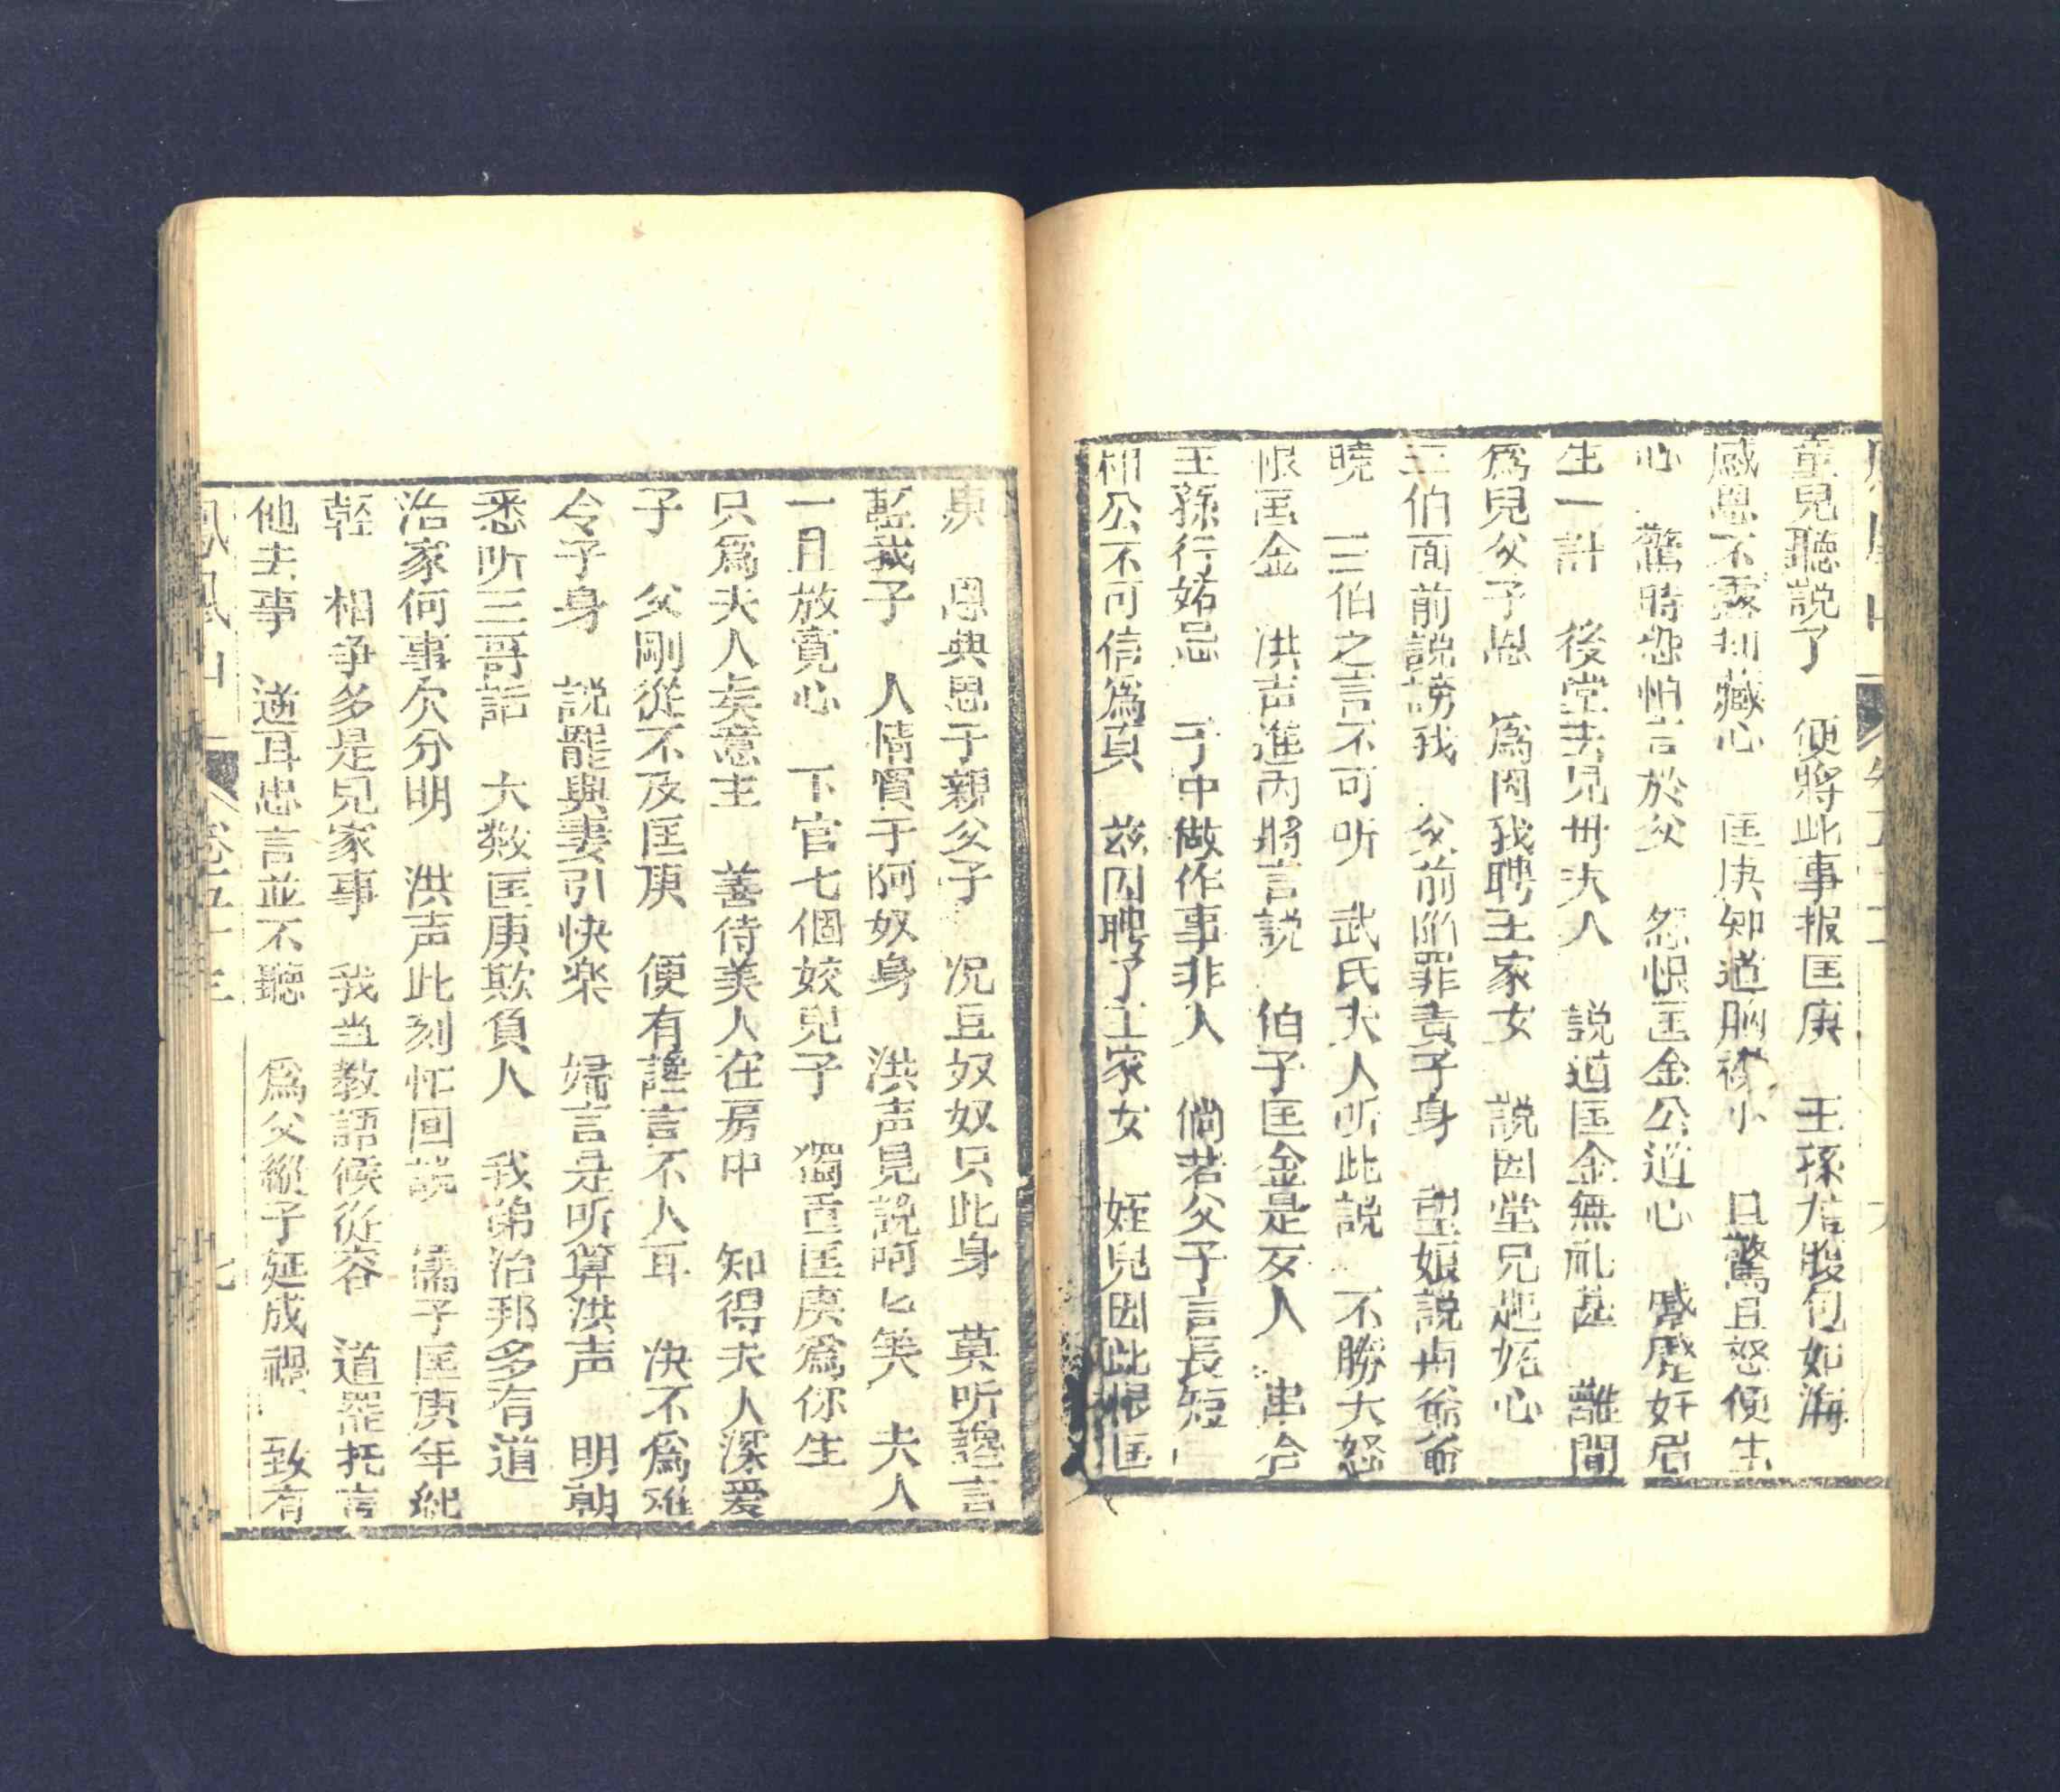 童兒聽說了　便將此事报匡庚　王孫
感恩不露　藏心　匡庚知道胸襟小　且驚且怒便生
心　驚時恐怕言於父　怨恨匡金公道心
生一計　後堂去見卅夫人　說道匡金無礼甚　離間
爲兒父子恩　爲因我聘王家女　說因堂兄起妬心
三伯面前說謗我　父前陷罪責子身　望娘說与爺爺
曉　三伯之言不可听　武氏夫人听此說　不勝大怒
恨匡金　洪声進內將言說　伯子匡金是歹人　串合
王孫行妬忌　于中做作事非人　倘若父子言長短
相公不可信爲真　兹因聘了王家女　姪兒因此恨匡
庚　恩與恩于親父子　况且奴奴只此身　莫听讒言
　我子　人情買于阿奴身　洪声見說呵匕笑　夫人
一且放寬心　下官七個姣兒子　獨重匡庚爲你生
只爲夫人矣意主　善待美人在房中　知得夫人深爱
子　父剛從不及匡庚　便有讒言不人耳　决不爲难
令子身　說罷與妻引快樂　婦言是听算洪声　明朝
悉听三哥話　大数匡庚欺負人　我弟治邦多有道
治家何事欠分明　洪声此刻忙回說　儒子匡庚年紀
輕　相爭多是兄家事　我当教語候從容　道罷托言
他去事　逆耳忠言並不聽　爲父縱子延成禍　致有
鳳凰山　卷五十三　九